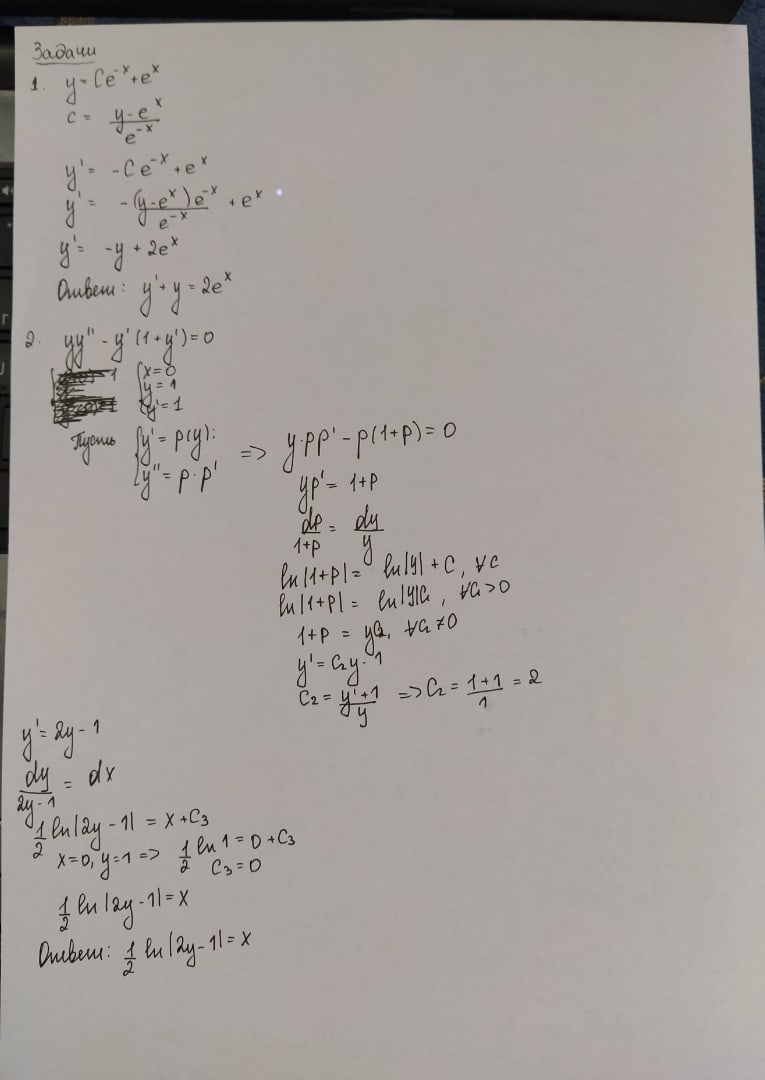 Задачи
1. y = Ce^{-x} + e^x
c = \frac{y - e^x}{e^{-x}}
y' = -Ce^{-x} + e^x
y' = \frac{-(y - e^x)e^{-x}}{e^{-x}} + e^x
y' = -y + 2e^x
Ответ: y' + y = 2e^x
2. yy'' - y'(1 + y') = 0
{ x = 0
y = 1
y' = 1
Пусть { y' = p(y): => y·pp' - p(1+p) = 0
y'' = p·p'
yp' = 1+p
\frac{dp}{1+p} = \frac{dy}{y}
ln|1+p| = ln|y| + C, ∀C
ln|1+p| = ln|y|C₁, ∀C₁ > 0
1+p = yC₂, ∀C₂ ≠ 0
y' = C₂y - 1
C₂ = \frac{y'+1}{y} => C₂ = \frac{1+1}{1} = 2
y' = 2y - 1
\frac{dy}{2y-1} = dx
\frac{1}{2} ln|2y-1| = x + C₃
x=0, y=1 => \frac{1}{2} ln 1 = 0 + C₃
C₃ = 0
\frac{1}{2} ln|2y-1| = x
Ответ: \frac{1}{2} ln|2y-1| = x